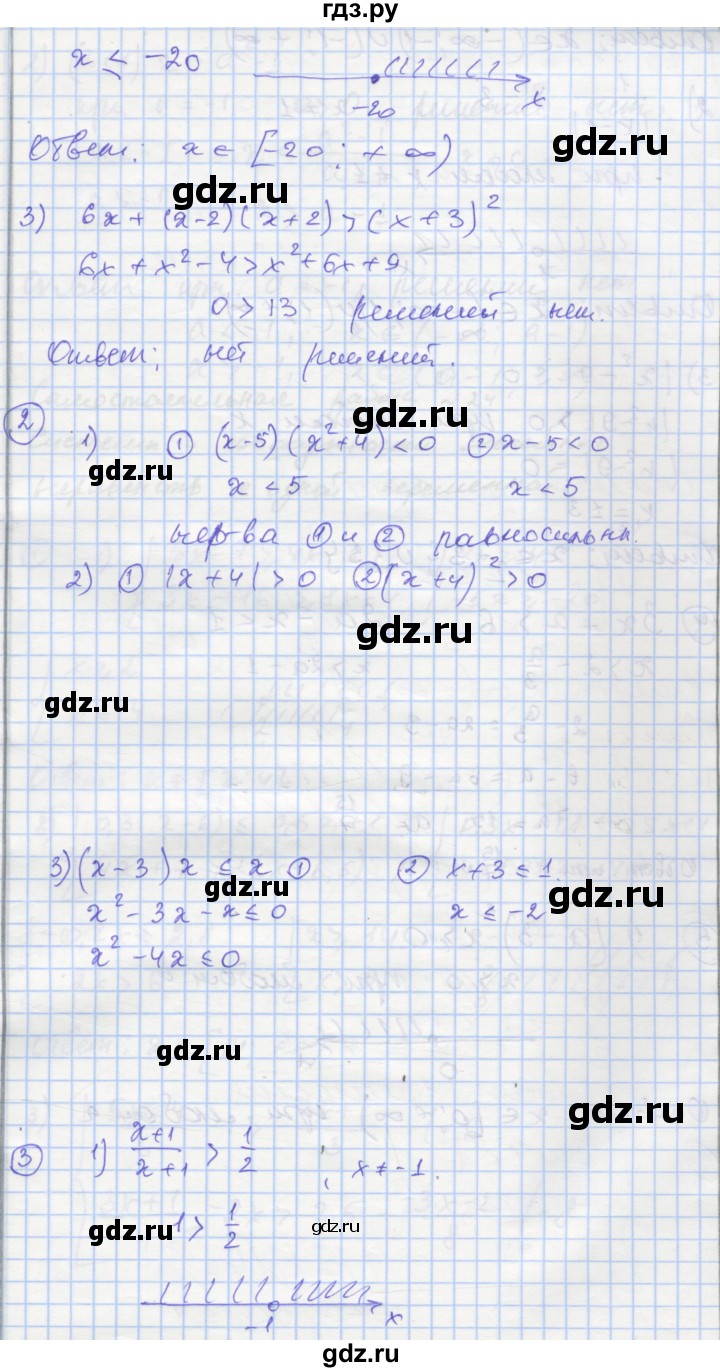 гдз.ру
x ≤ -20
-20 x
Ответ: x ∈ [-20; +∞)
gdz.ru
3) 6x + (x-2)(x+2) > (x+3)²
gdz.ru
6x + x² - 4 > x² + 6x + 9
0 > 13 решений нет.
Ответ: нет решений.
gdz.ru
2 1) ① (x-5)(x²+4) < 0 ② x-5 < 0
x < 5 x < 5
нер-ва ① и ② равносильны.
2) ① |x+4| > 0 ② (x+4)² > 0
gdz.ru
gdz.ru
3) (x-3)x ≤ x ① ② x+3 ≤ 1.
gdz.ru gdz.ru
x² - 3x - x ≤ 0 x ≤ -2
x² - 4x ≤ 0
gdz.ru
gdz.ru
3 1) x+1/x+1 > 1/2, x ≠ -1.
gdz.ru 1 > 1/2 gdz.ru
-1 x
гдз.ру